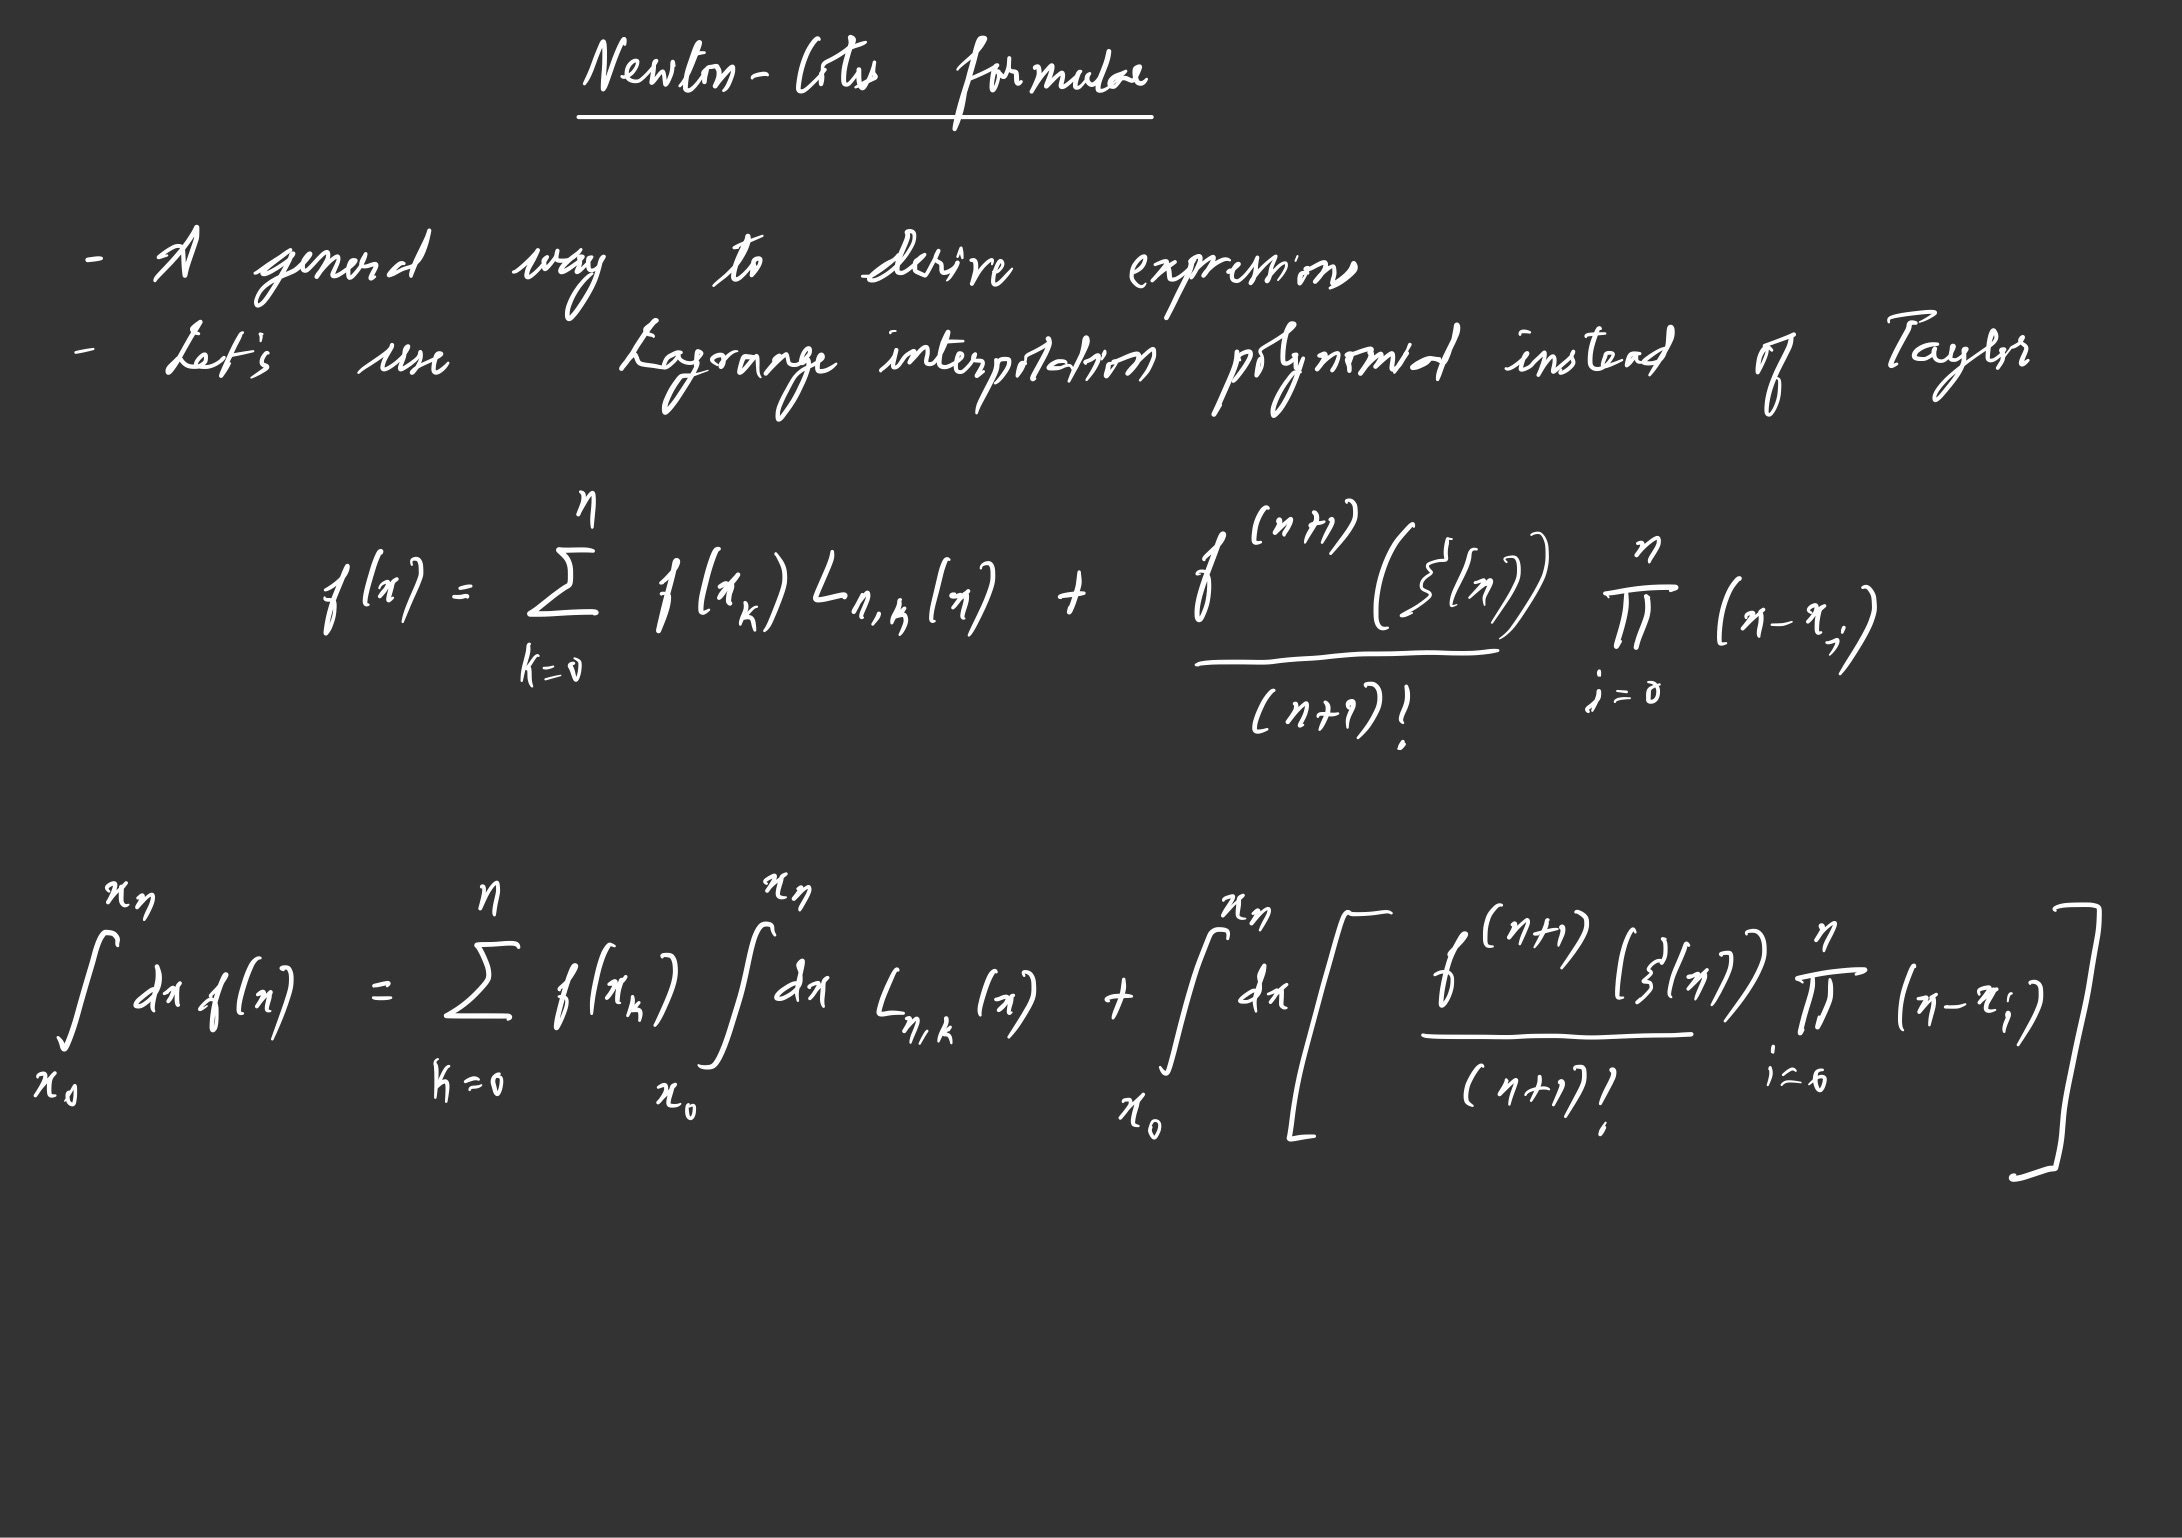 Newton-Cotes formulae
- A general way to derive expressions
- Let's use Lagrange interpolation polynomial instead of Taylor
f(x) = \sum_{k=0}^{n} f(x_k) L_{n,k}(x) + \frac{f^{(n+1)}(ξ(x))}{(n+1)!} \prod_{i=0}^{n} (x-x_i)
\int_{x_0}^{x_n} dx f(x) = \sum_{k=0}^{n} f(x_k) \int_{x_0}^{x_n} dx L_{n,k}(x) + \int_{x_0}^{x_n} dx \left[ \frac{f^{(n+1)}(ξ(x))}{(n+1)!} \prod_{i=0}^{n} (x-x_i) \right]